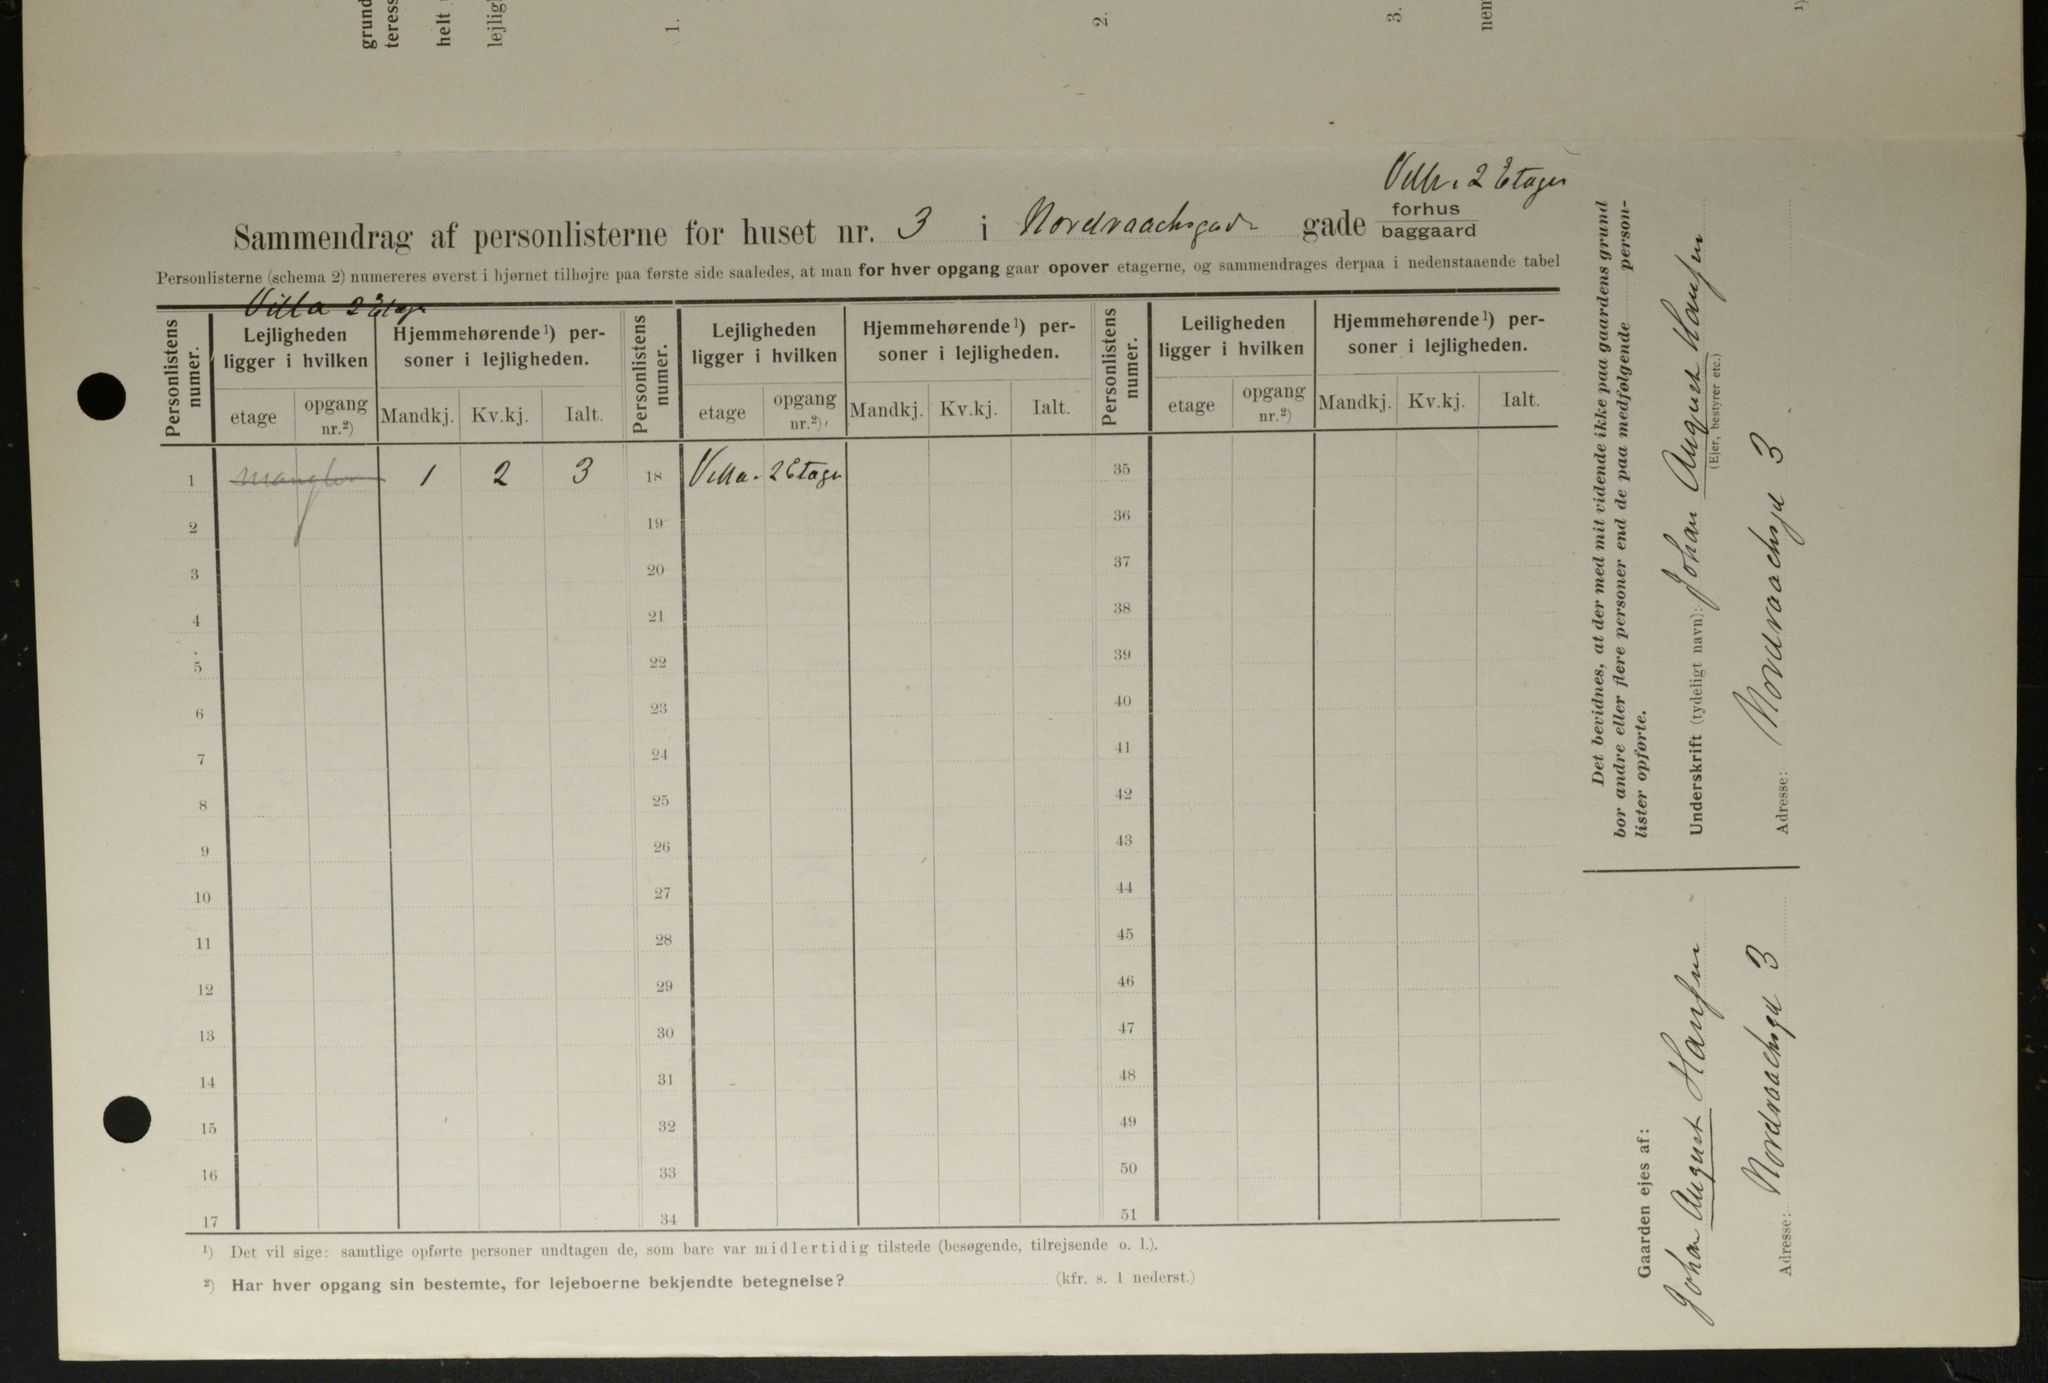 grund
teress
helt
lejlig
1.
2.
3.
nem
1)
Villa 2 Etager
Sammendrag af personlisterne for huset nr. 3 i Nordraachsgade gade forhus
baggaard
Personlisterne (schema 2) numereres øverst i hjørnet tilhøjre paa første side saaledes, at man for hver opgang gaar opover etagerne, og sammendrages derpaa i nedenstaaende tabel
Villa 2 Etager
Personlistens numer.
Lejligheden ligger i hvilken
Hjemmehørende¹) personer i lejligheden.
etage
opgang nr.²)
Mandkj.
Kv.kj.
Ialt.
Personlistens numer.
Lejligheden ligger i hvilken
Hjemmehørende¹) personer i lejligheden.
etage
opgang nr.²)
Mandkj.
Kv.kj.
Ialt.
Personlistens numer.
Leiligheden ligger i hvilken
Hjemmehørende¹) personer i lejligheden.
etage
opgang nr.²)
Mandkj.
Kv.kj.
Ialt.
1 mangler 1 2 3 18 Villa. 2 Etager 35
2 19 36
3 20 37
4 21 38
5 22 39
6 23 40
7 24 41
8 25 42
9 26 43
10 27 44
11 28 45
12 29 46
13 30 47
14 31 48
15 32 49
16 33 50
17 34 51
¹) Det vil sige: samtlige opførte personer undtagen de, som bare var midlertidig tilstede (besøgende, tilrejsende o. l.).
²) Har hver opgang sin bestemte, for lejeboerne bekjendte betegnelse? (kfr. s. 1 nederst.)
Det bevidnes, at der med mit vidende ikke paa gaardens grund
bor andre eller flere personer end de paa medfølgende person-
lister opførte.
Underskrift (tydeligt navn): Johan August Hansen
(Ejer, bestyrer etc.)
Adresse: Nordraachsgd 3
Gaarden ejes af:
Johan August Hansen
Adresse: Nordraachsgd 3